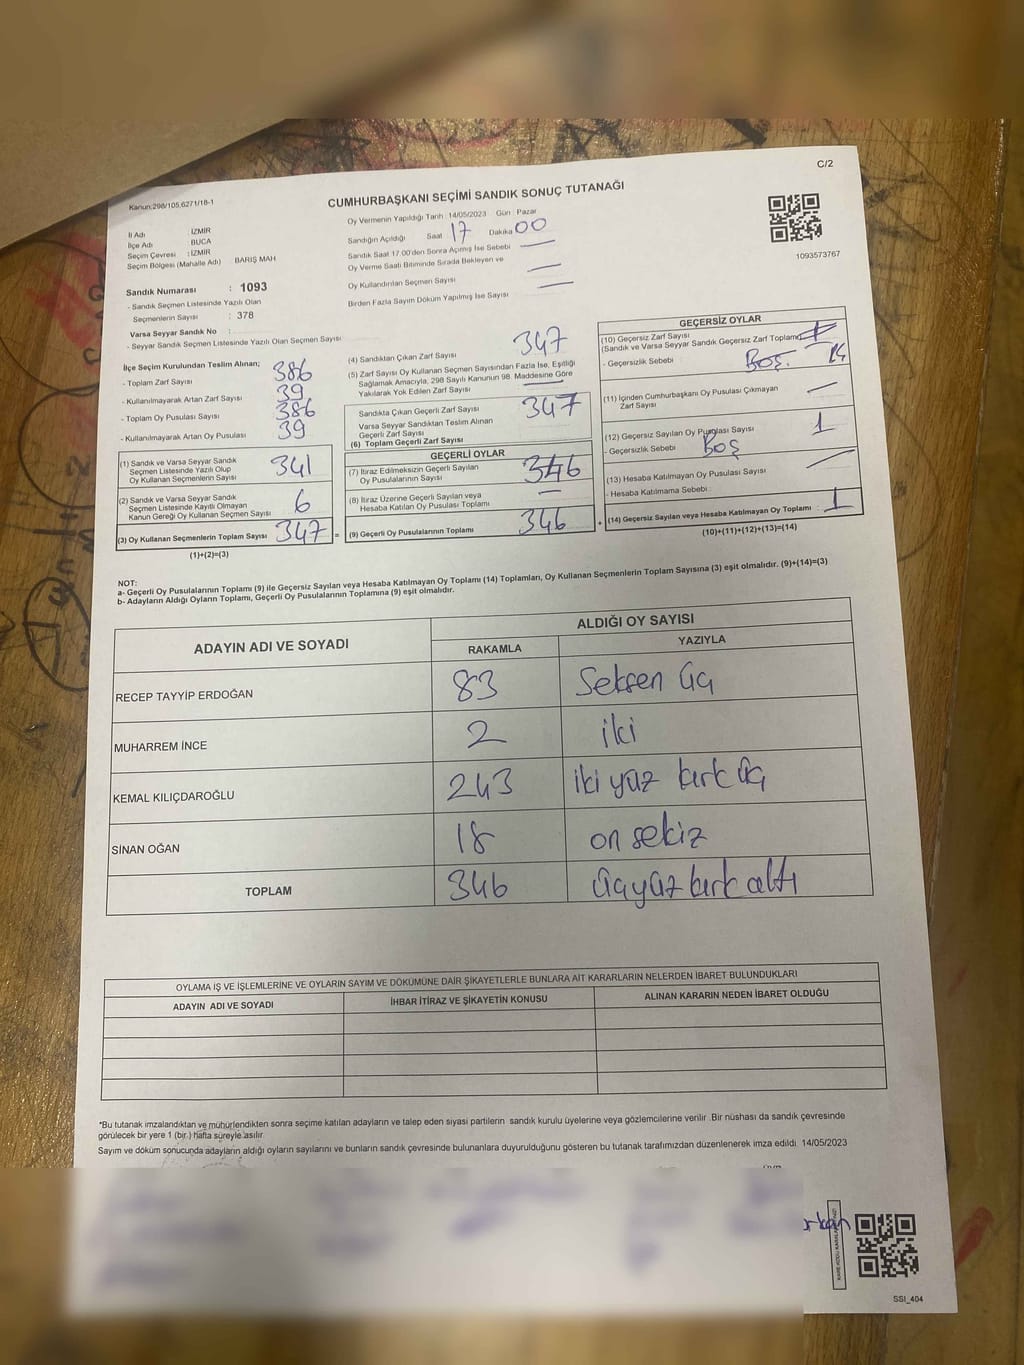 C/2
Kanun:298/105,6271/18-1
CUMHURBAŞKANI SEÇİMİ SANDIK SONUÇ TUTANAĞI
İl Adı : İZMİR
İlçe Adı : BUCA
Seçim Çevresi : İZMİR
Seçim Bölgesi (Mahalle Adı) BARIŞ MAH
Sandık Numarası : 1093
- Sandık Seçmen Listesinde Yazılı Olan
Seçmenlerin Sayısı : 378
Varsa Seyyar Sandık No :
- Seyyar Sandık Seçmen Listesinde Yazılı Olan Seçmen Sayısı
Oy Vermenin Yapıldığı Tarih : 14/05/2023 Gün : Pazar
Sandığın Açıldığı Saat 17 Dakika 00
Sandık Saat 17.00'den Sonra Açılmış İse Sebebi
Oy Verme Saati Bitiminde Sırada Bekleyen ve
Oy Kullandırılan Seçmen Sayısı
Birden Fazla Sayım Döküm Yapılmış İse Sayısı
1093573767
İlçe Seçim Kurulundan Teslim Alınan;
- Toplam Zarf Sayısı 386
- Kullanılmayarak Artan Zarf Sayısı 39
- Toplam Oy Pusulası Sayısı 386
- Kullanılmayarak Artan Oy Pusulası 39
(1) Sandık ve Varsa Seyyar Sandık
Seçmen Listesinde Yazılı Olup
Oy Kullanan Seçmenlerin Sayısı 341
(2) Sandık ve Varsa Seyyar Sandık
Seçmen Listesinde Kayıtlı Olmayan
Kanun Gereği Oy Kullanan Seçmen Sayısı 6
(3) Oy Kullanan Seçmenlerin Toplam Sayısı 347 =
(1)+(2)=(3)
(4) Sandıktan Çıkan Zarf Sayısı 347
(5) Zarf Sayısı Oy Kullanan Seçmen Sayısından Fazla İse, Eşitliği
Sağlamak Amacıyla, 298 Sayılı Kanunun 98. Maddesine Göre
Yakılarak Yok Edilen Zarf Sayısı
Sandıkta Çıkan Geçerli Zarf Sayısı 347
Varsa Seyyar Sandıktan Teslim Alınan
Geçerli Zarf Sayısı
(6) Toplam Geçerli Zarf Sayısı
GEÇERLİ OYLAR
(7) İtiraz Edilmeksizin Geçerli Sayılan
Oy Pusulalarının Sayısı 346
(8) İtiraz Üzerine Geçerli Sayılan veya
Hesaba Katılan Oy Pusulası Toplamı
(9) Geçerli Oy Pusulalarının Toplamı 346 +
GEÇERSİZ OYLAR
(10) Geçersiz Zarf Sayısı
(Sandık ve Varsa Seyyar Sandık Geçersiz Zarf Toplamı)
- Geçersizlik Sebebi : Boş.
(11) İçinden Cumhurbaşkanı Oy Pusulası Çıkmayan
Zarf Sayısı
(12) Geçersiz Sayılan Oy Pusulası Sayısı 1
- Geçersizlik Sebebi : Boş
(13) Hesaba Katılmayan Oy Pusulası Sayısı
- Hesaba Katılmama Sebebi :
(14) Geçersiz Sayılan veya Hesaba Katılmayan Oy Toplamı : 1
(10)+(11)+(12)+(13)=(14)
NOT:
a- Geçerli Oy Pusulalarının Toplamı (9) ile Geçersiz Sayılan veya Hesaba Katılmayan Oy Toplamı (14) Toplamları, Oy Kullanan Seçmenlerin Toplam Sayısına (3) eşit olmalıdır. (9)+(14)=(3)
b- Adayların Aldığı Oyların Toplamı, Geçerli Oy Pusulalarının Toplamına (9) eşit olmalıdır.
ADAYIN ADI VE SOYADI
ALDIĞI OY SAYISI
RAKAMLA YAZIYLA
RECEP TAYYİP ERDOĞAN 83 Seksen üç
MUHARREM İNCE 2 iki
KEMAL KILIÇDAROĞLU 243 iki yüz kırk üç
SİNAN OĞAN 18 on sekiz
TOPLAM 346 üçyüz kırk altı
OYLAMA İŞ VE İŞLEMLERİNE VE OYLARIN SAYIM VE DÖKÜMÜNE DAİR ŞİKAYETLERLE BUNLARA AİT KARARLARIN NELERDEN İBARET BULUNDUKLARI
ADAYIN ADI VE SOYADI İHBAR İTİRAZ VE ŞİKAYETİN KONUSU ALINAN KARARIN NEDEN İBARET OLDUĞU
*Bu tutanak imzalandıktan ve mühürlendikten sonra seçime katılan adayların ve talep eden siyasi partilerin sandık kurulu üyelerine veya gözlemcilerine verilir. Bir nüshası da sandık çevresinde
görülecek bir yere 1 (bir) hafta süreyle asılır.
Sayım ve döküm sonucunda adayların aldığı oyların sayılarını ve bunların sandık çevresinde bulunanlara duyurulduğunu gösteren bu tutanak tarafımızdan düzenlenerek imza edildi. 14/05/2023
SSI_404